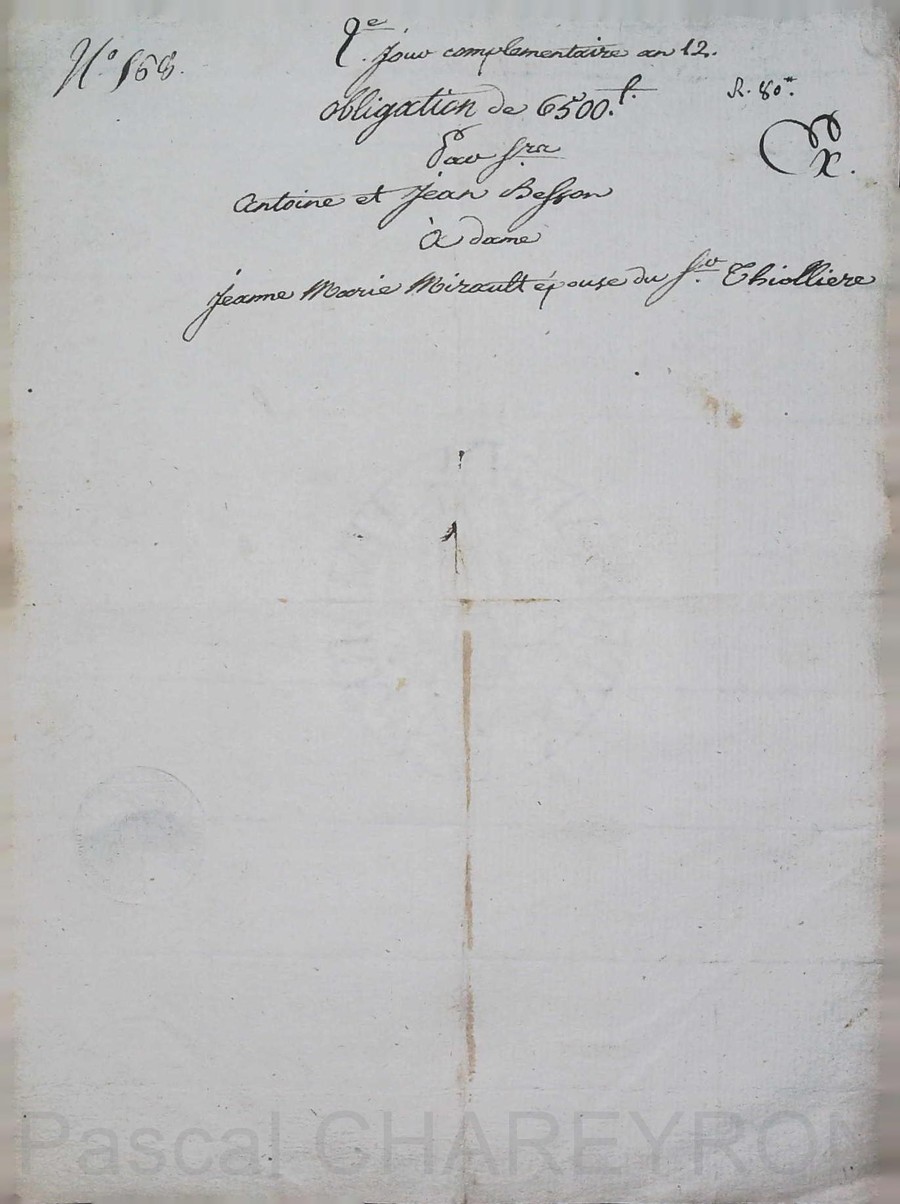 N.o 168.
2.e Jour complementaire an 12.
obligation de 6500.f.
R. 80.
Par S.rs
Antoine et Jean Besson
à dame
Jeanne Marie Mirault épouse du S.r Thiolliere
Pascal CHAREYRON